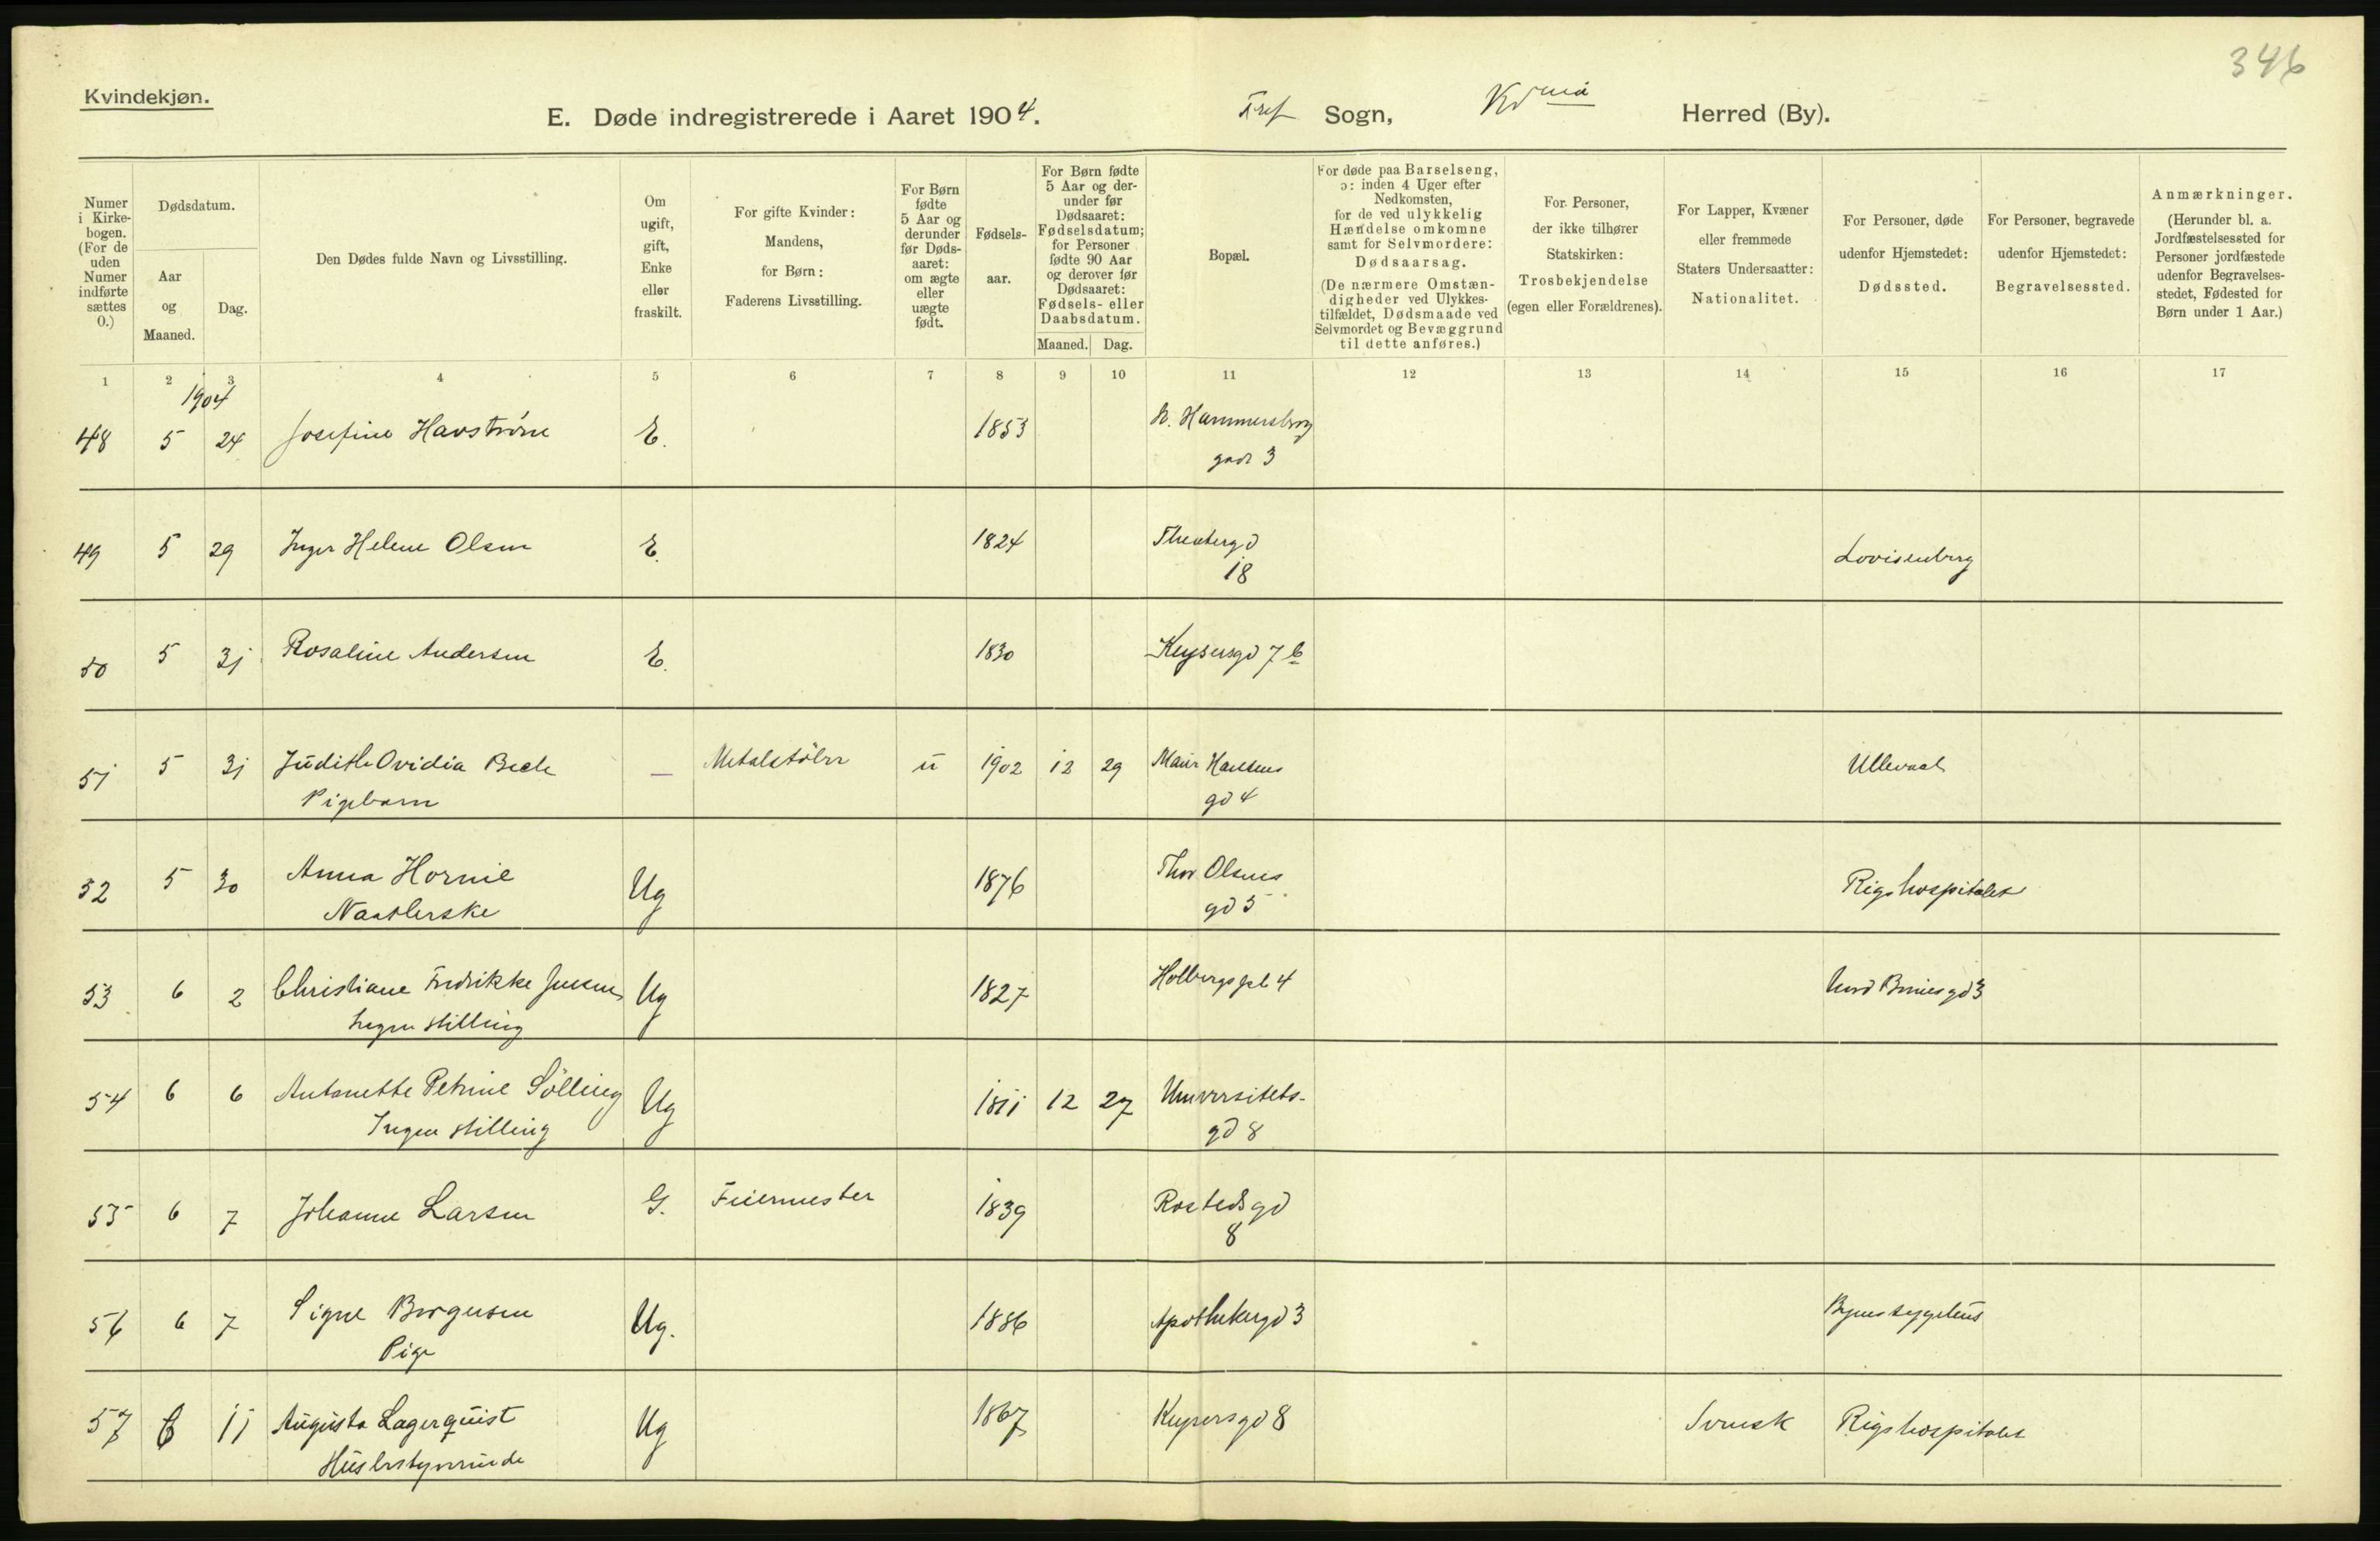 346
Kvindekjøn.
E. Døde indregistrerede i Aaret 1904. Tref Sogn, Kr.nia Herred (By).
Numer i Kirkebogen. (For de uden Numer indførte sættes 0.)
Dødsdatum.
Aar og Maaned.
Dag.
Den Dødes fulde Navn og Livsstilling.
Om ugift, gift, Enke eller fraskilt.
For gifte Kvinder: Mandens, for Børn: Faderens Livsstilling.
For Børn fødte 5 Aar og derunder før Dødsaaret: om ægte eller uægte født.
Fødselsaar.
For Børn fødte 5 Aar og derunder før Dødsaaret: Fødselsdatum; for Personer fødte 90 Aar og derover før Dødsaaret: Fødsels- eller Daabsdatum.
Maaned. Dag.
Bopæl.
For døde paa Barselseng, ɔ: inden 4 Uger efter Nedkomsten, for de ved ulykkelig Hændelse omkomne samt for Selvmordere: Dødsaarsag. (De nærmere Omstændigheder ved Ulykkestilfældet, Dødsmaade ved Selvmordet og Bevæggrund til dette anføres.)
For Personer, der ikke tilhører Statskirken: Trosbekjendelse (egen eller Forældrenes).
For Lapper, Kvæner eller fremmede Staters Undersaatter: Nationalitet.
For Personer, døde udenfor Hjemstedet: Dødssted.
For Personer, begravede udenfor Hjemstedet: Begravelsessted.
Anmærkninger. (Herunder bl. a. Jordfæstelsessted for Personer jordfæstede udenfor Begravelsesstedet, Fødested for Børn under 1 Aar.)
1 2 3 4 5 6 7 8 9 10 11 12 13 14 15 16 17
1904
48 5 24 Josefine Havstrøm E. 1853 N. Hammersborg
gade 3
49 5 29 Inger Helene Olsen E. 1824 Theatergd
18 Lovisenberg
50 5 31 Rosaline Andersen E. 1830 Keysersgd 7 b
51 5 31 Judith Ovidia Beck — Metalstøber u 1902 12 29 Mair Hansens
Pigebarn gd 4 Ullevaal
52 5 30 Anna Hornie Ug 1876 Thor Olsens
Naatlerske gd 5 Rigshospitalet
53 6 2 Christiane Fredrikke Jensen Ug 1827 Holbergs gd 4
Ingen stilling Bruns gd 3
54 6 6 Antonette Petrine Sölling Ug 1811 12 27 Universitets-
Ingen stilling gd 8
55 6 7 Johanne Larsen G. Feiermester 1839 Rostedsgd
8
56 6 7 Signe Borgersen Ug. 1886 Apothekergd 3 Byens sygehus
Pige
57 6 11 Augusta Lagerquist Ug 1867 Keysersgd 8 Svensk Rigshospitalet
Husbestyrerinde